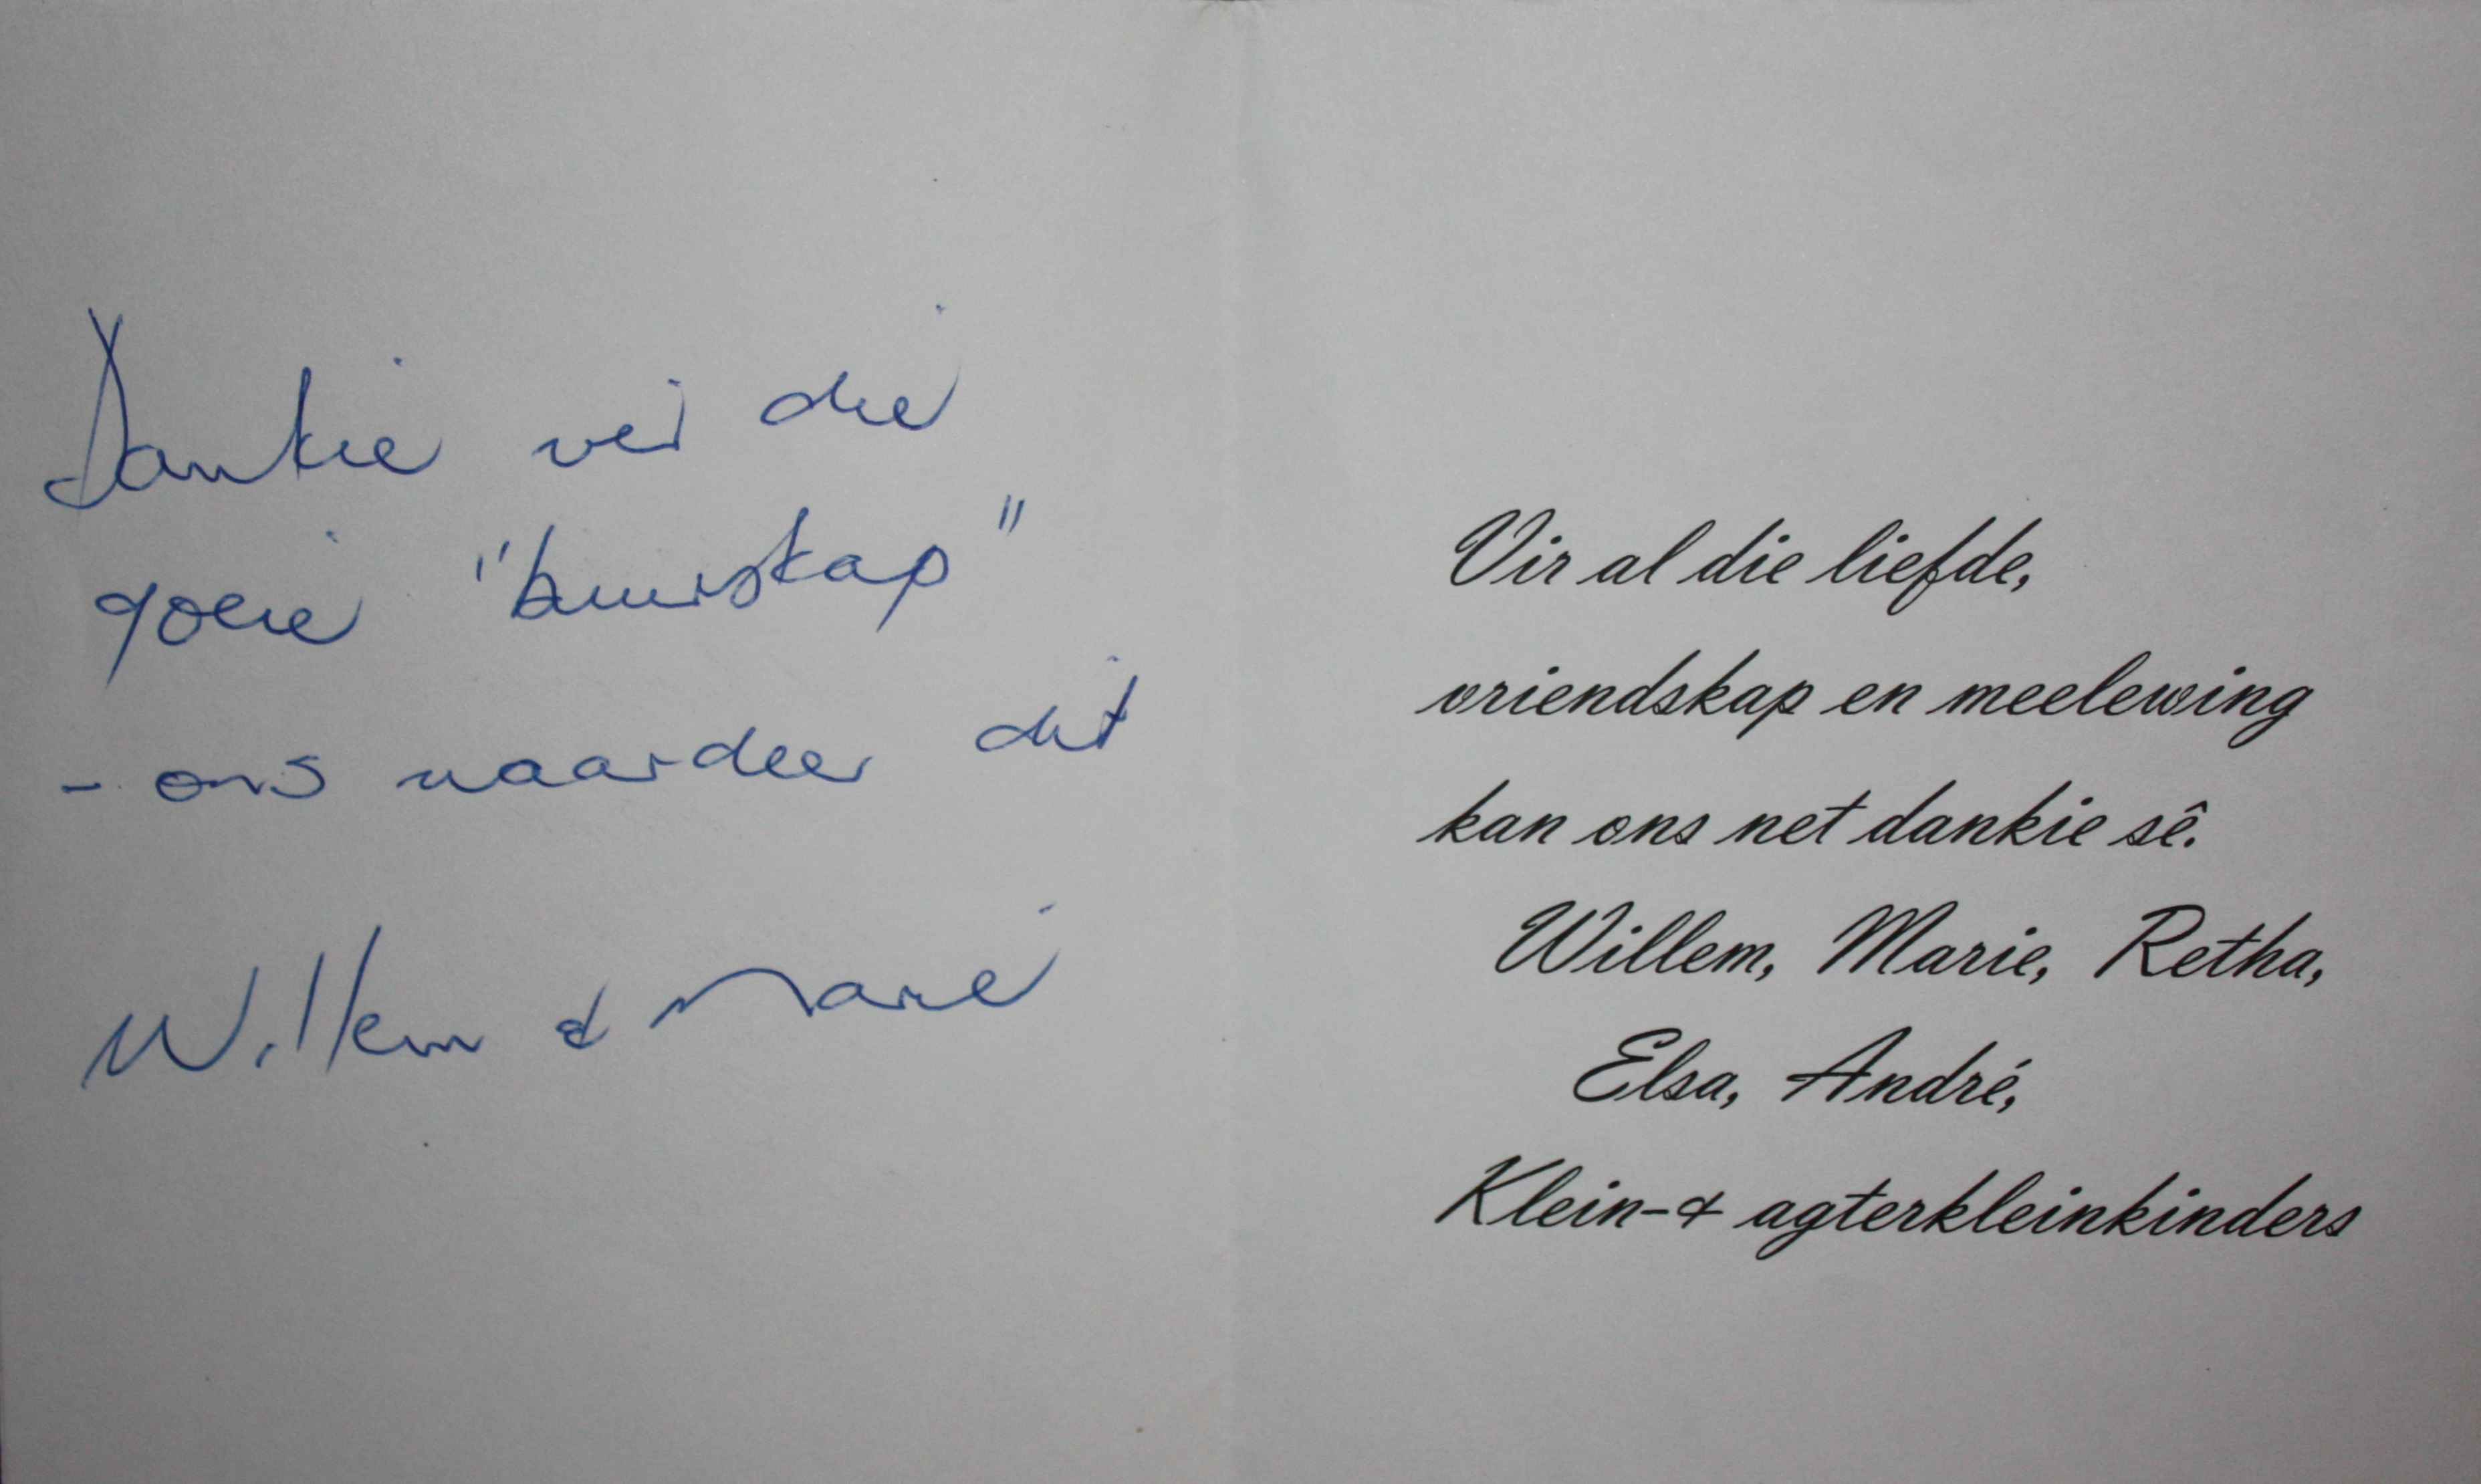 Dankie vir die
goeie "buurskap"
- ons waardeer dit
Willem & Marie
Vir al die liefde,
vriendskap en meelewing
kan ons net dankie sê.
Willem, Marie, Retha,
Elsa, André,
Klein- & agterkleinkinders